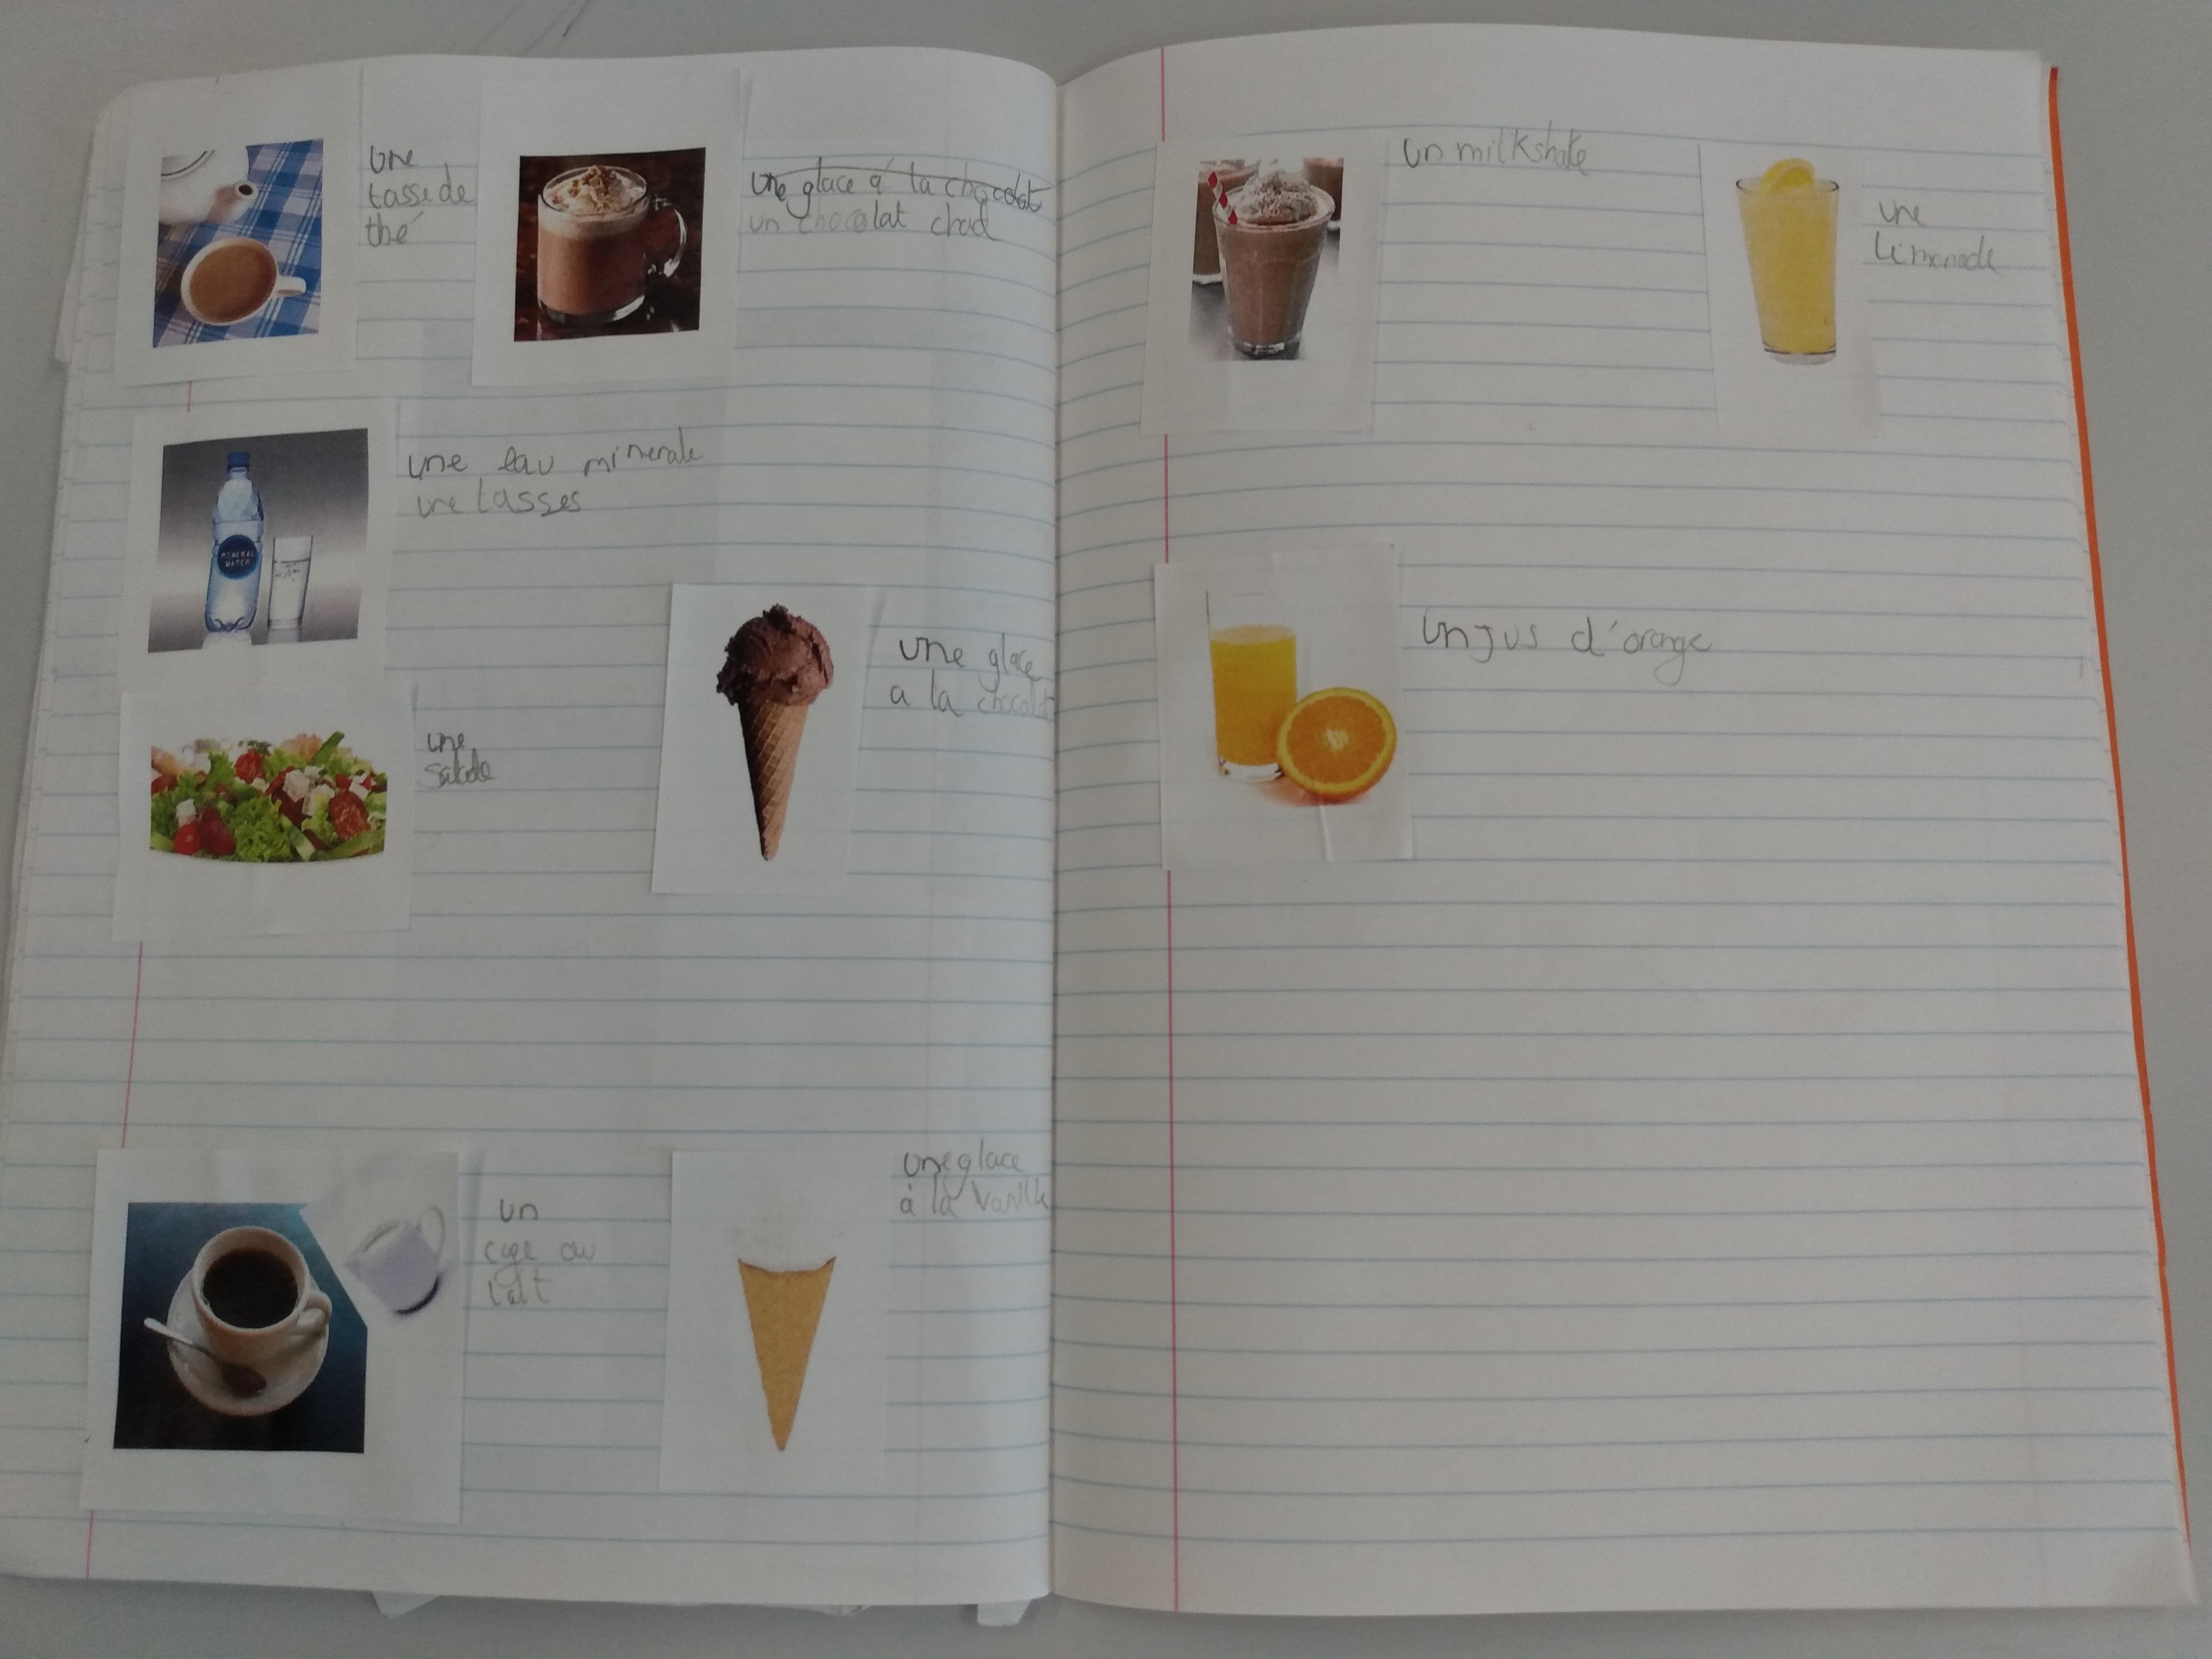 une
tasse de
thé
une glace á la chocolat
un chocolat chad
une eau minerale
une tasses
MINERAL
WATER
une glace
a la chocolat
une
salade
un
cafe au
lait
une glace
à la vanille
un milkshake
une
limonade
un jus d'orange